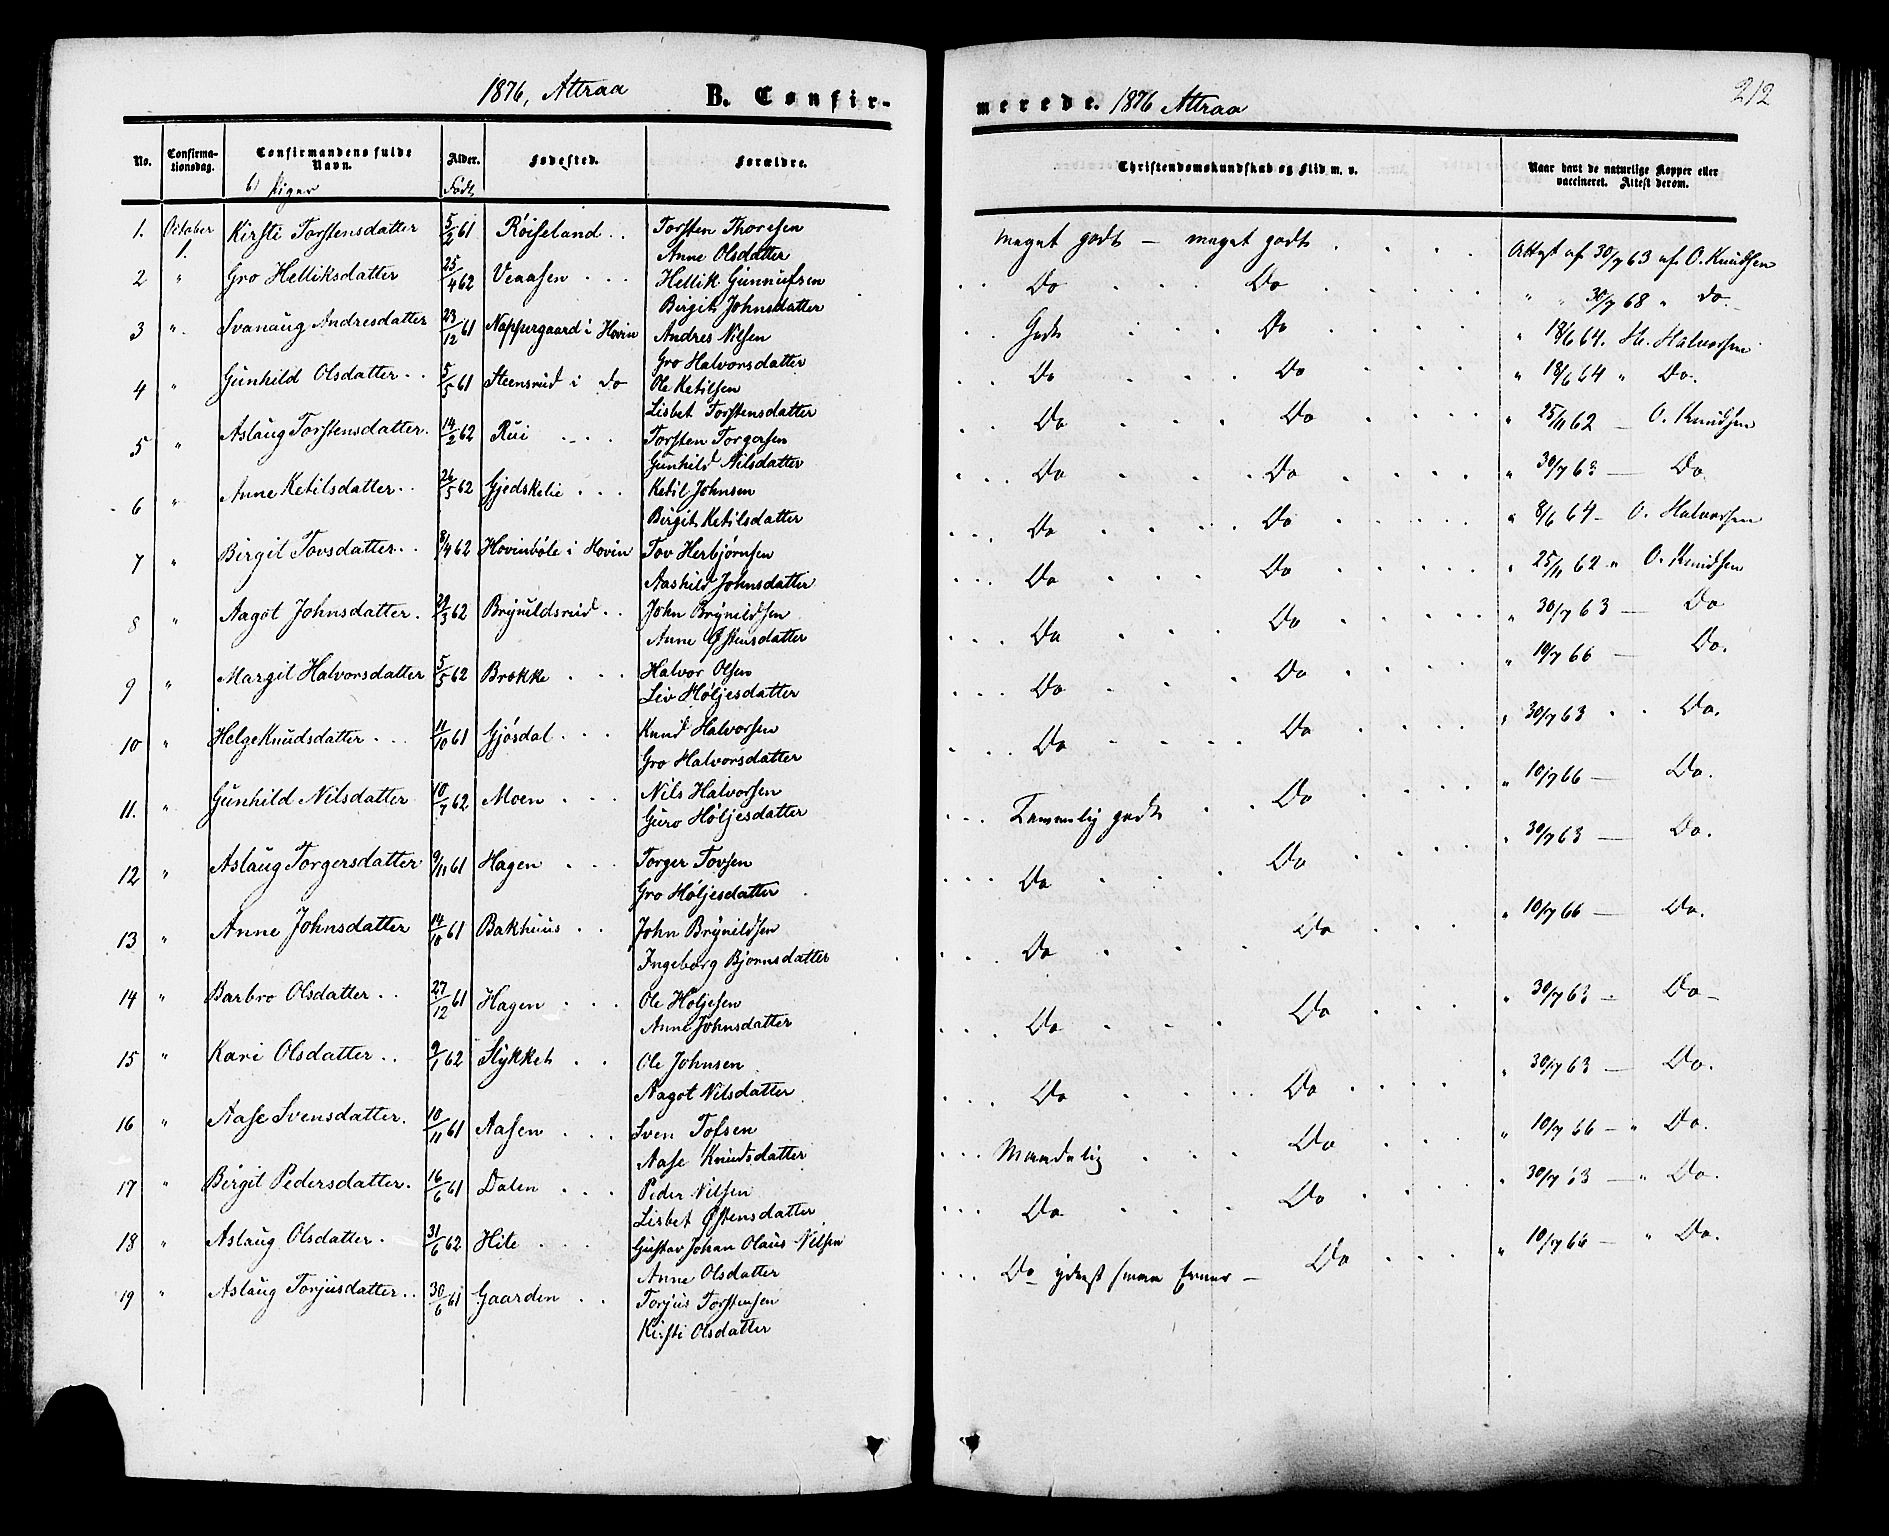 1876, Attraa B. Confir-
No. Confirma-tionsdag. Confirmandens fulde Navn. Alder. Fødested. Forældre.
b) Piger Født
1. October 1. Kirsti Torstensdatter 5/2 61 Røiseland . . Torsten Thoresen
Anne Olsdatter
2 " Gro Helliksdatter 25/4 62 Veaasen . . . Hellik Gunnufsen
Birgit Johnsdatter
3 " Svanaug Andresdatter 23/12 61 Nappergaard i Hovin Andres Nilsen
Gro Halvorsdatter
4 " Gunhild Olsdatter . . 5/5 61 Steensrud i do Ole Ketilsen
Lisbet Torstensdatter
5 " Aslaug Torstensdatter. 14/2 62 Rui . . . . Torsten Torgersen
Gunhild Nilsdatter
6 " Anne Ketilsdatter . . 26/5 62 Gjedskelie . . . Ketil Johnsen
Birgit Ketilsdatter
7 " Birgit Tovsdatter . . 8/4 62 Hovinbøle i Hovin Tov Herbjørnsen
Aashild Johnsdatter
8 " Aagot Johnsdatter . 29/3 62 Brynildsrud . . John Brynildsen
Anne Østensdatter
9 " Margit Halvorsdatter 5/5 62 Brokke . . . Halvor Olsen
Liv Høljesdatter
10 " Helge Knudsdatter . . . 11/10 61 Gjøsdal . . . Knud Halvorsen
Gro Halvorsdatter
11. " Gunhild Nilsdatter 10/7 62 Moen . . . Nils Halvorsen
Guro Høljesdatter
12 " Aslaug Torgersdatter 9/11 61 Hagen . . . Torger Tovsen
Gro Høljesdatter
13 " Anne Johnsdatter 14/10 61 Bakhuus . . John Brynildsen
Ingeborg Bjørnsdatter
14 " Barbro Olsdatter . . 27/12 61 Hagen . . . Ole Høljesen
Anne Johnsdatter
15 " Kari Olsdatter . . 9/1 62 Stykket . . Ole Johnsen
Aagot Nilsdatter
16 " Aase Svensdatter. 10/11 61 Aasen . . . Sven Tofsen
Aase Knudsdatter
17 " Birgit Pedersdatter. 16/6 61 Dalen . . . Peder Nilsen
Lisbet Østensdatter
18 " Aslaug Olsdatter . 31/6 62 Hite . . . Gustav Johan Olaus Nilsen
Anne Olsdatter
19 " Aslaug Torjusdatter . . 30/6 61 Gaarden . . Torjus Torstensen
Kirsti Olsdatter
merede. 1876 Attraa 212
Christendomskundskab og Flid m. v. Naar havt de naturlige Kopper eller vaccineret. Attest derom.
meget godt — meget godt . . . Attest af 30/7 63 af O. Knudsen
Do Do " " 30/7 68 " do.
Godt Do " 18/6 64. H. Halvorsen
Do Do " 18/6 64 " Do.
Do Do " 25/11 62 — O. Knudsen
Do Do " 30/7 63 — Do
Do Do " 8/6 64 - O. Halvorsen
Do Do " 25/11 62 " O. Knudsen
Do Do " 30/7 63 — Do
Do Do " 10/7 66 — Do.
Do Do " 30/7 63 . . Do.
Temmelig godt . . Do " 10/7 66 — Do.
Do Do " 30/7 63 — Do.
Do Do " 10/7 66 — Do.
Do Do " 30/7 63 - Do -
Do Do " 30/7 63 — Do.
Maadelig Do " 10/7 66 — " Do.
Do Do " 30/7 63 — " Do.
Do yderst smaa Evner — Do " 10/7 66 — " Do.